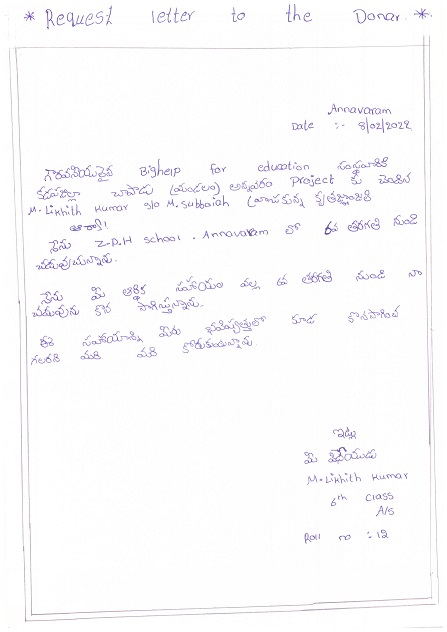 * Request letter to the Donar. *
Annavaram
Date :- 8/02/2022
గౌరవనీయులైన Bighelp for education సంస్థవారికి
కడపజిల్లా చాపాడు (మండలం) అన్నవరం Project కు చెందిన
M. Likhith Kumar s/o M. Subbaiah వ్రాసుకున్న కృతజ్ఞాంజలి
నేను Z.P.H school. Annavaram లో 6వ తరగతి నుండి
చదువుచున్నాను.
నేను మీ ఆర్థిక సహాయం వల్ల 6వ తరగతి నుండి నా
చదువును కొన సాగిస్తున్నాను.
ఈ సహాయాన్ని మీరు భవిష్యత్తులో కూడ కొనసాగించ
గలరని మరి మరి కోరుకుంటున్నాను.
ఇట్లు
మీ విధేయుడు
M. Likhith Kumar
6th class
A/s
Roll no : 12